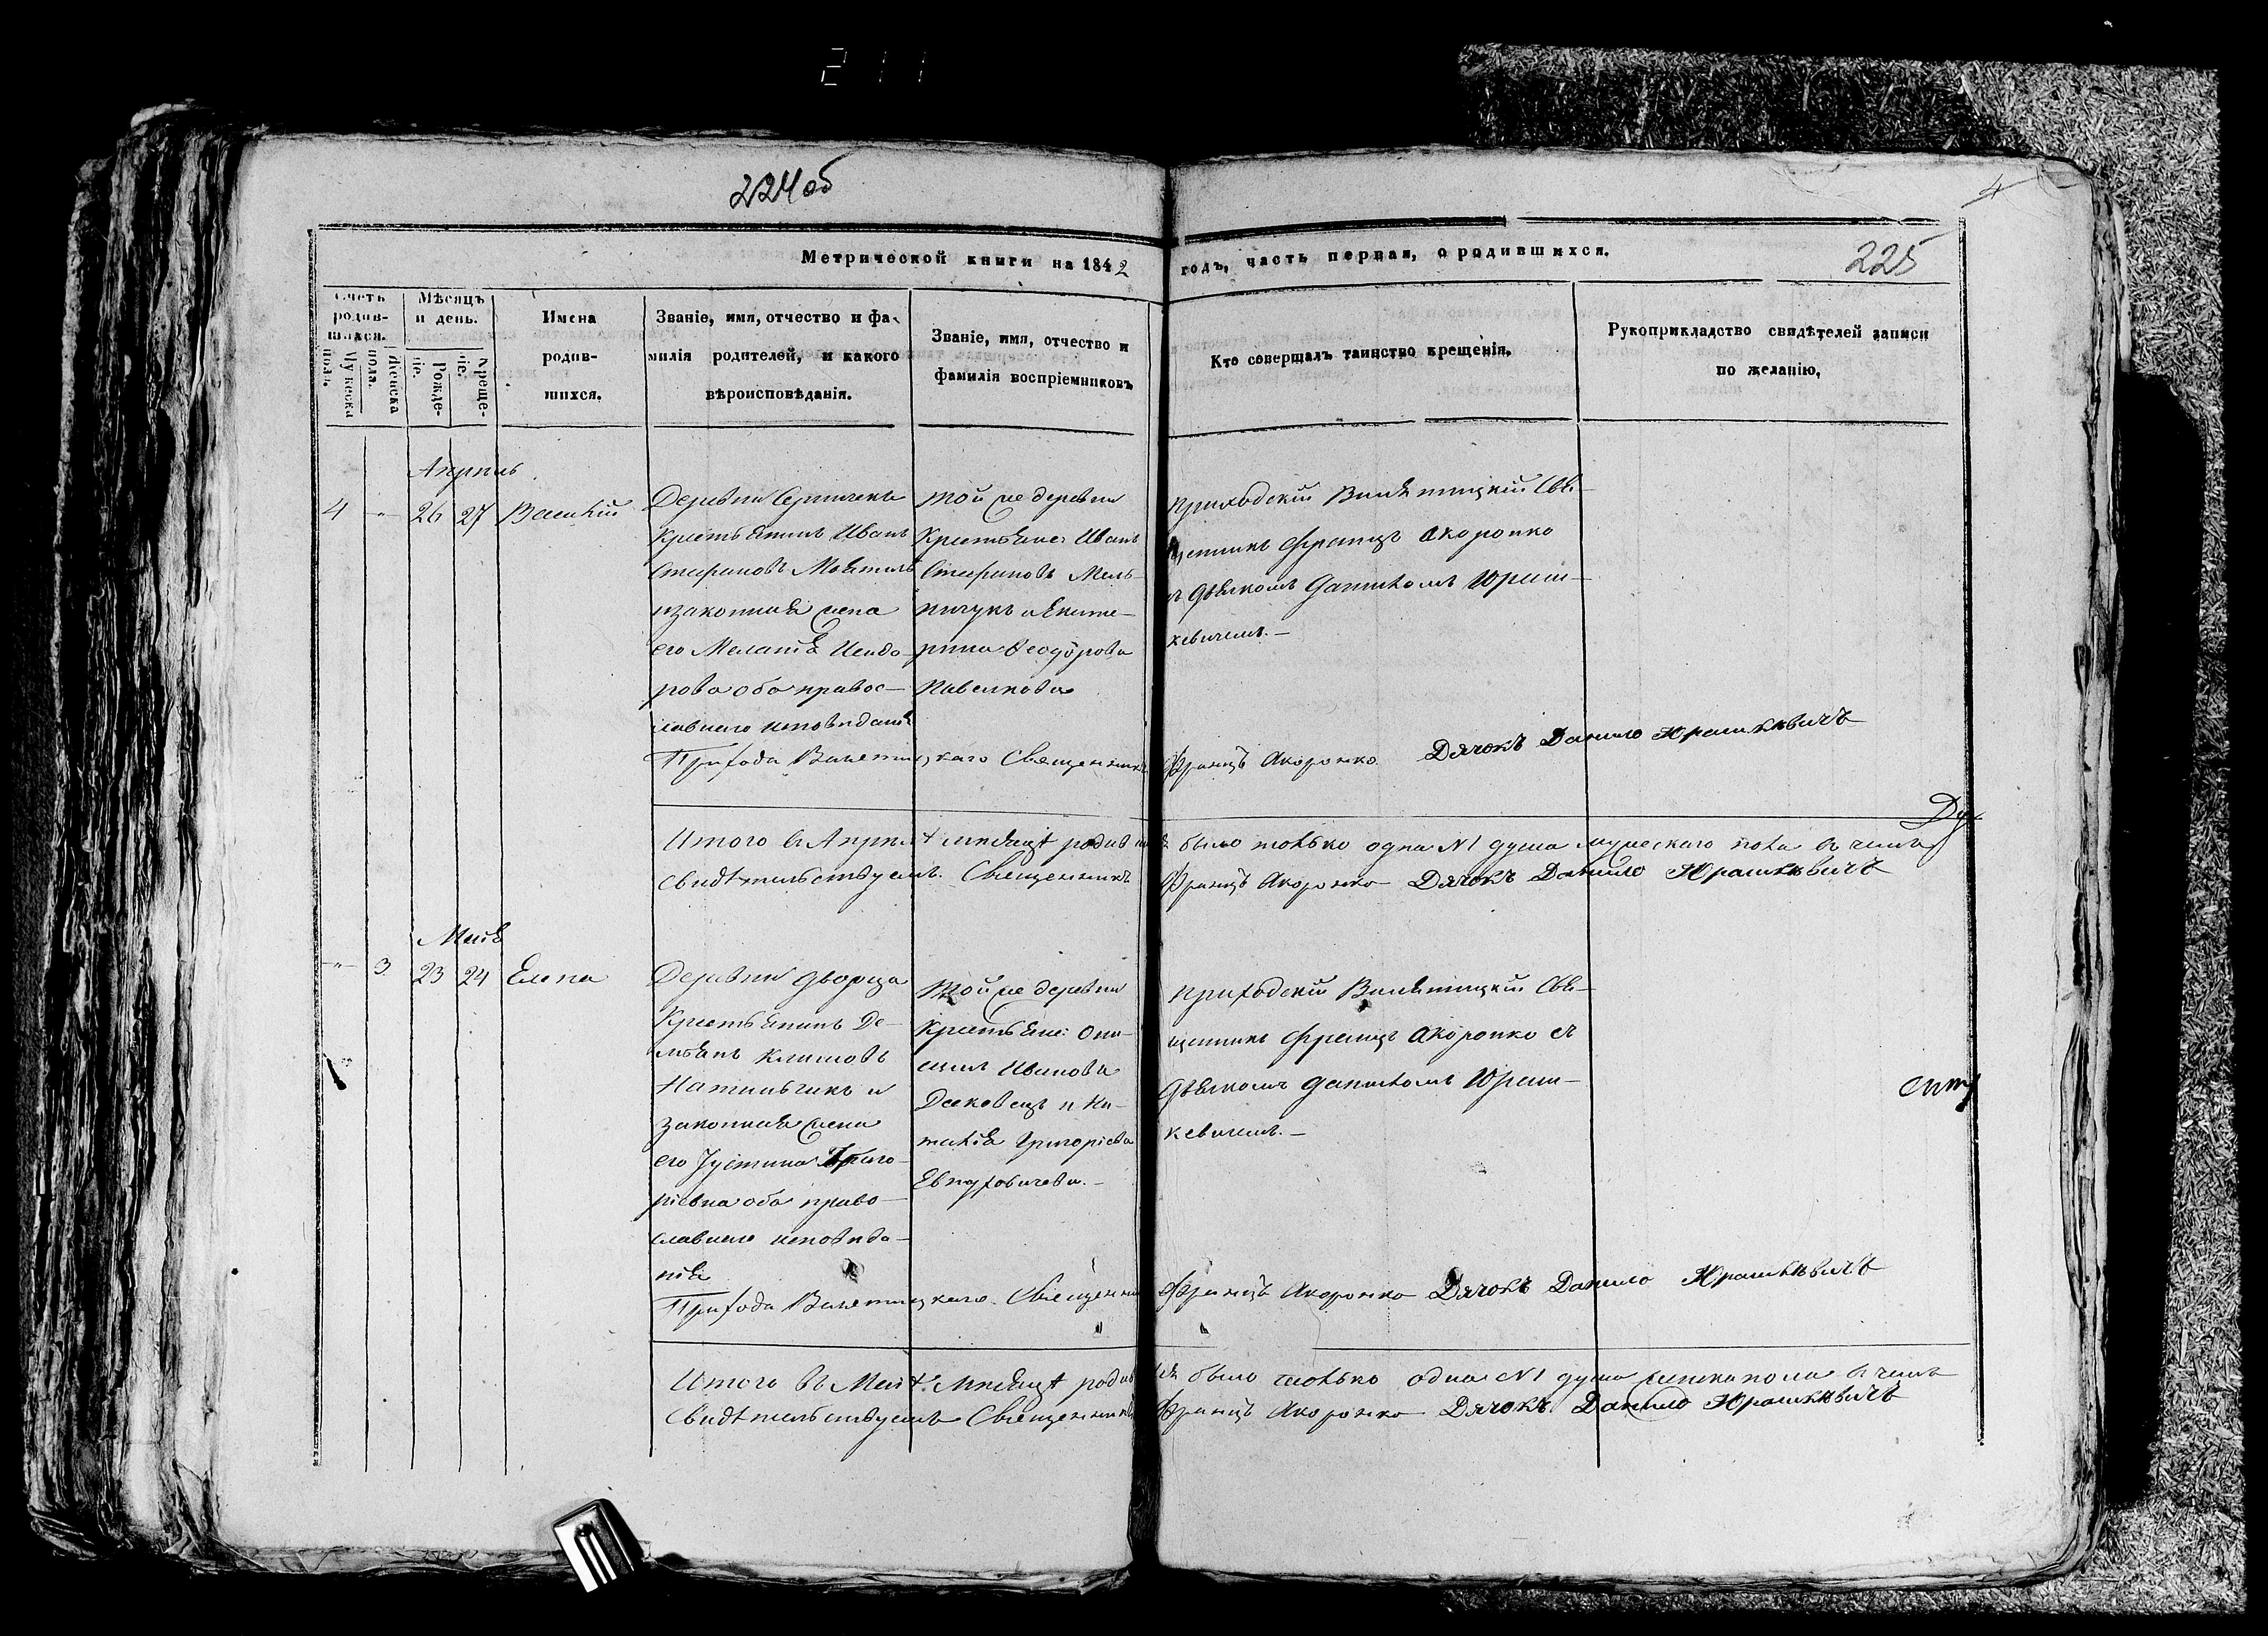 211
224 об
4
225
Метрической книги на 1842 годъ, часть первая, о родившихся.
Счетъ родив-шихся.
Мужеска пола.
Женска пола.
Мѣсяцъ и день.
Рожде-ніе.
Креще-ніе.
Имена
родив-
шихся.
Званіе, имя, отчество и фа-
милія родителей, и какого
вѣроисповѣданія.
Званіе, имя, отчество и
фамилія воспріемниковъ
Кто совершалъ таинство крещенія.
Рукоприкладство свидѣтелей записи
по желанію,
Апрѣль
4 " 26 27 Василій
Деревни
крестьянинъ Иванъ
Стефановъ
и законная жена
его Меланія Исидо-
рова оба правос-
лавнаго исповѣданія
Той же деревни
Крестьяне: Иванъ
Стефановъ Мель-
ничукъ и Екате-
рина Феодорова
Приходскій Свя-
щенникъ Францъ Акоронко
съ Дьячкомъ Даниломъ Юраш-
кевичемъ. —
Прихода Священникъ Францъ Акоронко Дячокъ Данило Юрашкѣвичъ
Ду
Итого въ Апрѣлѣ мѣсяцѣ родившихся было только одна №1 душа мужескаго пола въ чемъ
свидѣтельствуемъ. Священникъ Францъ Акоронко Дячокъ Данило Юрашкѣвичъ
Маія
" 3 23 24 Елена
Деревни Дворца
Крестьянинъ Де-
мьянъ Климовъ
и
законная жена
его Іустина Григо-
ріевна оба право-
славнаго исповѣда-
нія
Той же деревни
Крестьяне: Они-
симъ Иванова
и На-
талія Григоріева
Евтуховичева. —
Приходскій Свя-
щенникъ Францъ Акоронко съ
Дьячкомъ Даниломъ Юраш-
кевичемъ. —
Прихода Священникъ Францъ Акоронко Дячокъ Данило Юрашкѣвичъ
Итого въ Маіѣ мѣсяцѣ родившихся было только одна №1 душа женска пола въ чемъ
свидѣтельствуемъ Священникъ Францъ Акоронко Дячокъ Данило Юрашкѣвичъ